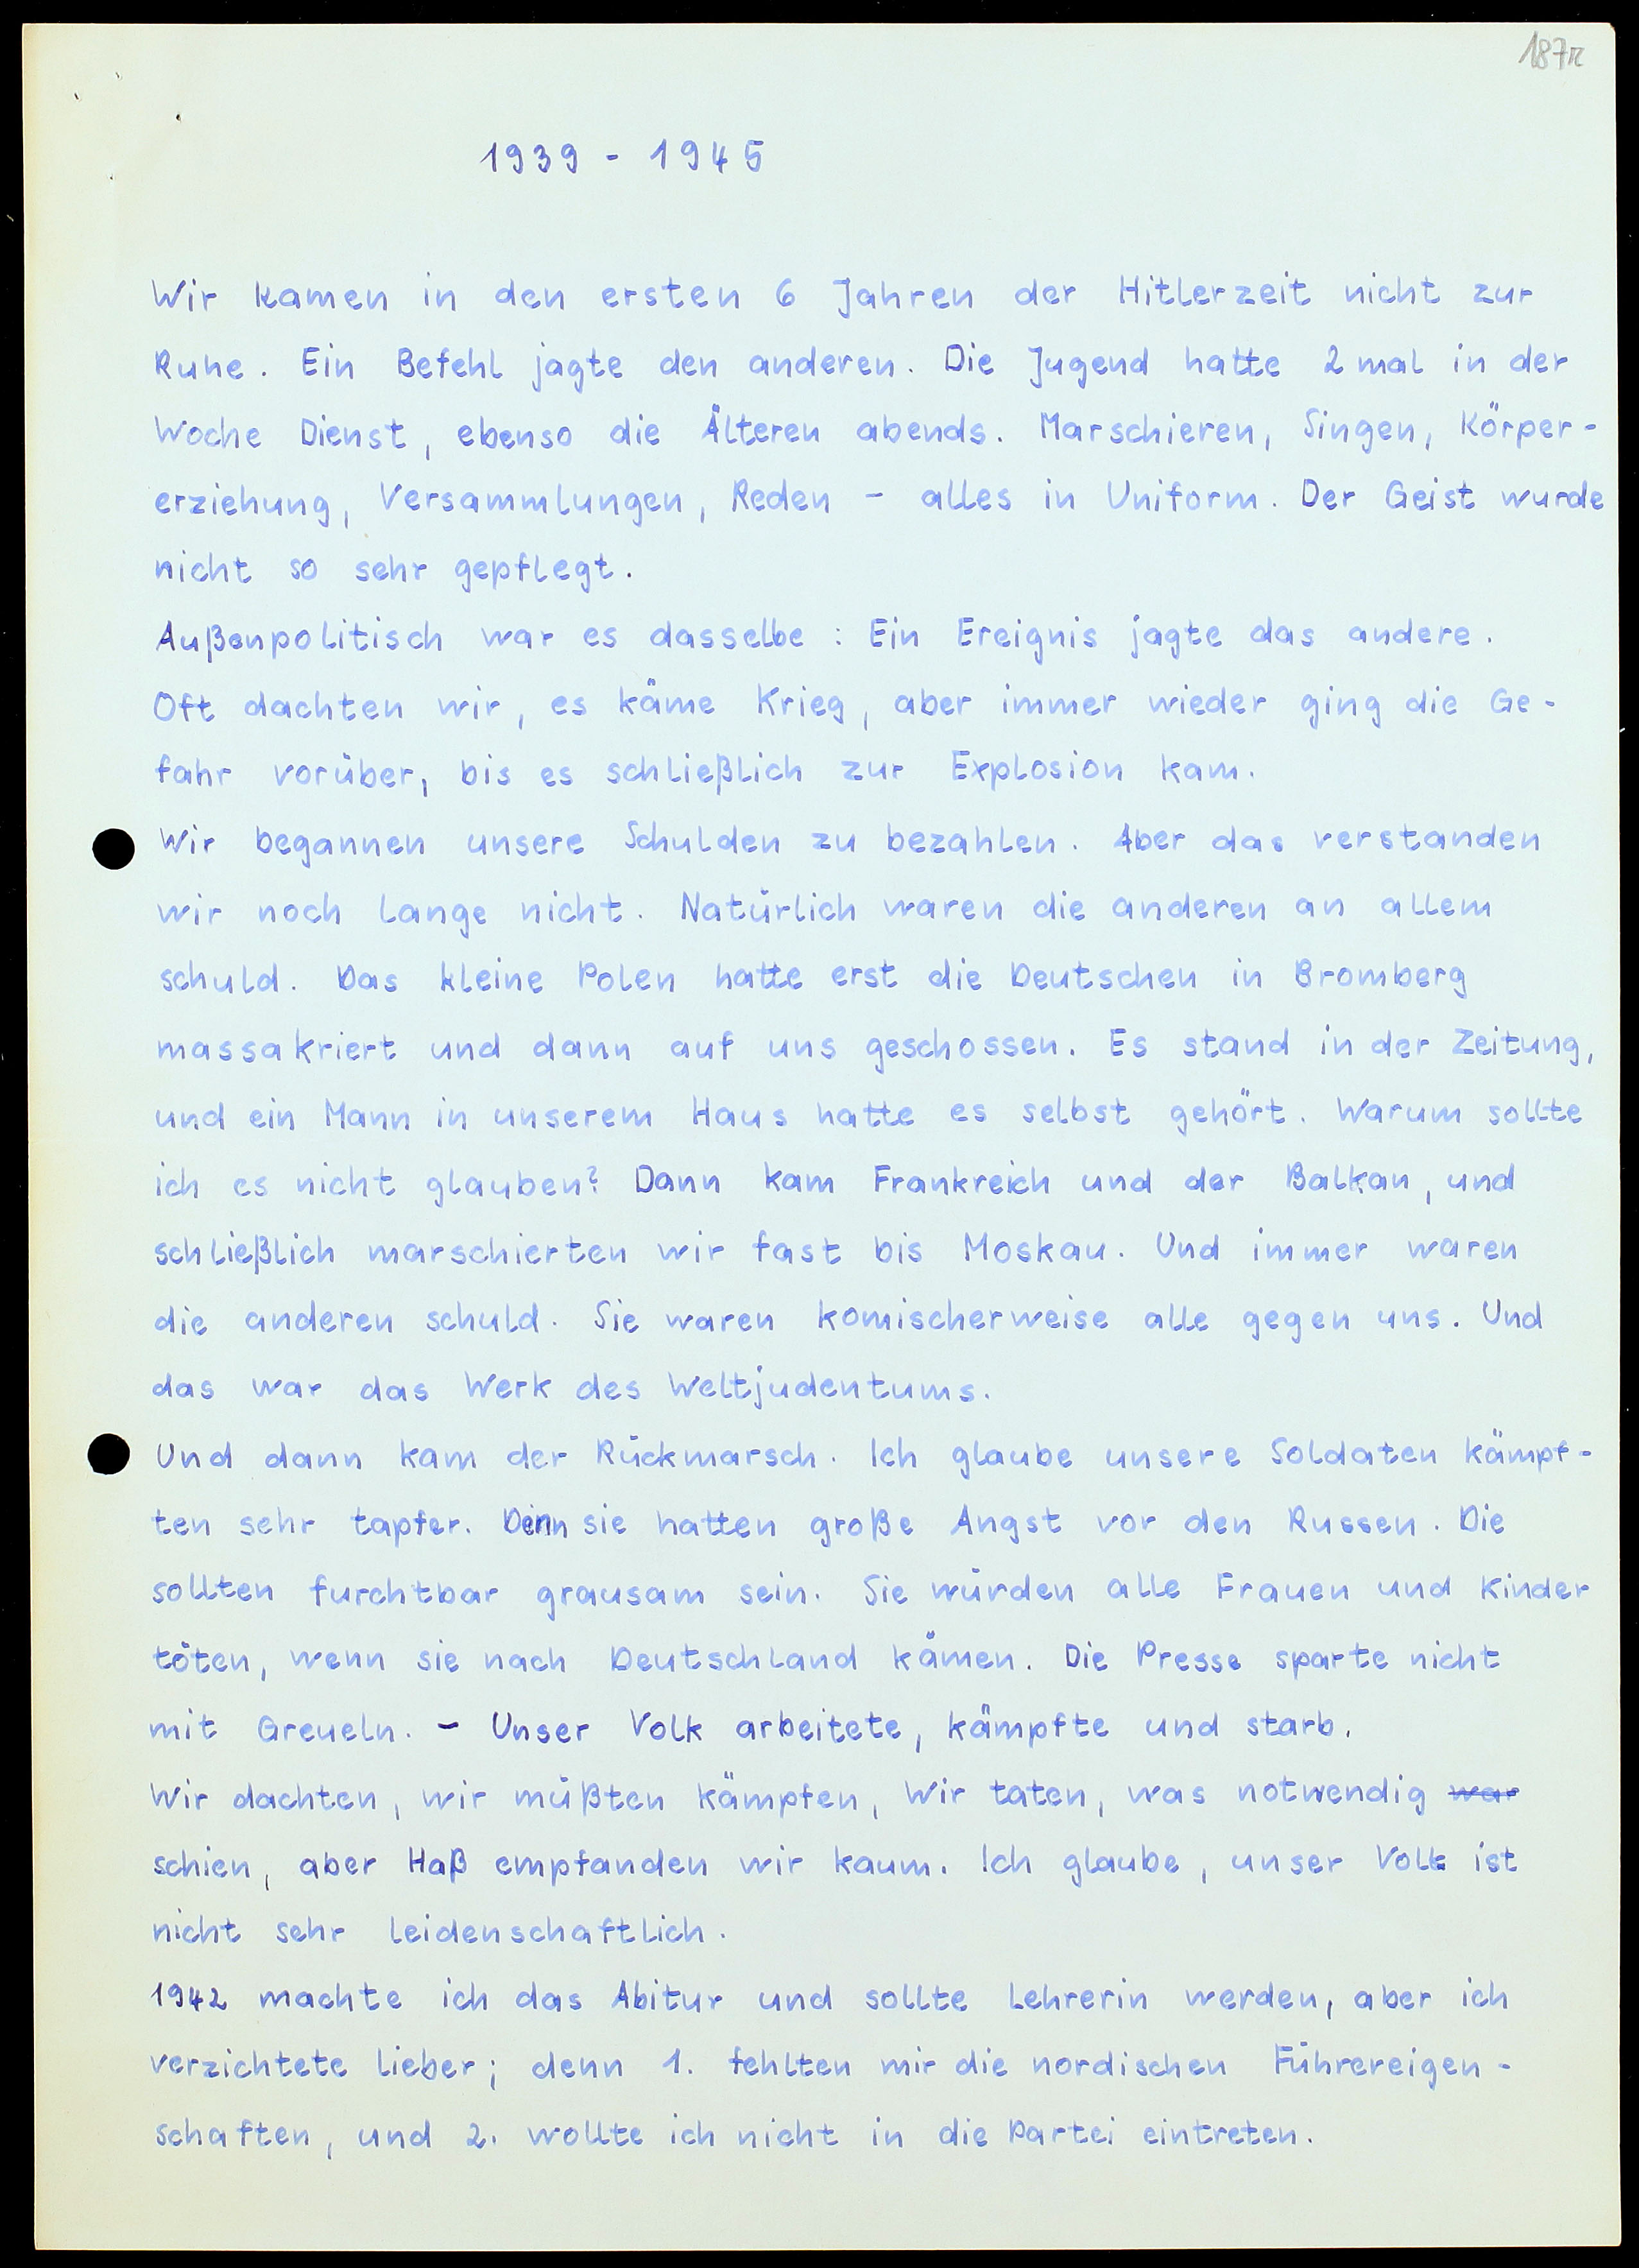 187r
1939 - 1945
Wir kamen in den ersten 6 Jahren der Hitlerzeit nicht zur
Ruhe. Ein Befehl jagte den anderen. Die Jugend hatte 2 mal in der
Woche Dienst, ebenso die Älteren abends. Marschieren, Singen, Körper-
erziehung, Versammlungen, Reden - alles in Uniform. Der Geist wurde
nicht so sehr gepflegt.
Außenpolitisch war es dasselbe: Ein Ereignis jagte das andere.
Oft dachten wir, es käme Krieg, aber immer wieder ging die Ge-
fahr vorüber, bis es schließlich zur Explosion kam.
Wir begannen unsere Schulden zu bezahlen. Aber das verstanden
wir noch lange nicht. Natürlich waren die anderen an allem
schuld. Das kleine Polen hatte erst die Deutschen in Bromberg
massakriert und dann auf uns geschossen. Es stand in der Zeitung,
und ein Mann in unserem Haus hatte es selbst gehört. Warum sollte
ich es nicht glauben? Dann kam Frankreich und der Balkan, und
schließlich marschierten wir fast bis Moskau. Und immer waren
die anderen schuld. Sie waren komischerweise alle gegen uns. Und
das war das Werk des Weltjudentums.
Und dann kam der Rückmarsch. Ich glaube unsere Soldaten kämpf-
ten sehr tapfer. Denn sie hatten große Angst vor den Russen. Die
sollten furchtbar grausam sein. Sie würden alle Frauen und Kinder
töten, wenn sie nach Deutschland kämen. Die Presse sparte nicht
mit Greueln. - Unser Volk arbeitete, kämpfte und starb.
Wir dachten, wir müßten kämpfen, Wir taten, was notwendig war
schien, aber Haß empfanden wir kaum. Ich glaube, unser Volk ist
nicht sehr leidenschaftlich.
1942 machte ich das Abitur und sollte Lehrerin werden, aber ich
verzichtete lieber; denn 1. fehlten mir die nordischen Führereigen-
schaften, und 2. wollte ich nicht in die Partei eintreten.